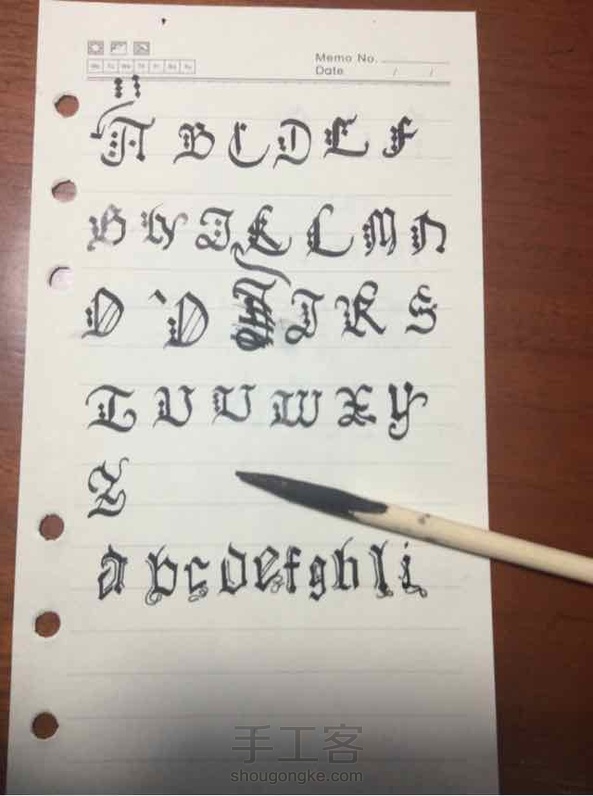 Memo No.
Mo Tu We Th Fr Sa Su
Date / /
A B C D E F
G H I K L M N
O S
T U V W X Y
Z
a b c d e f g h i
手工客
shougongke.com